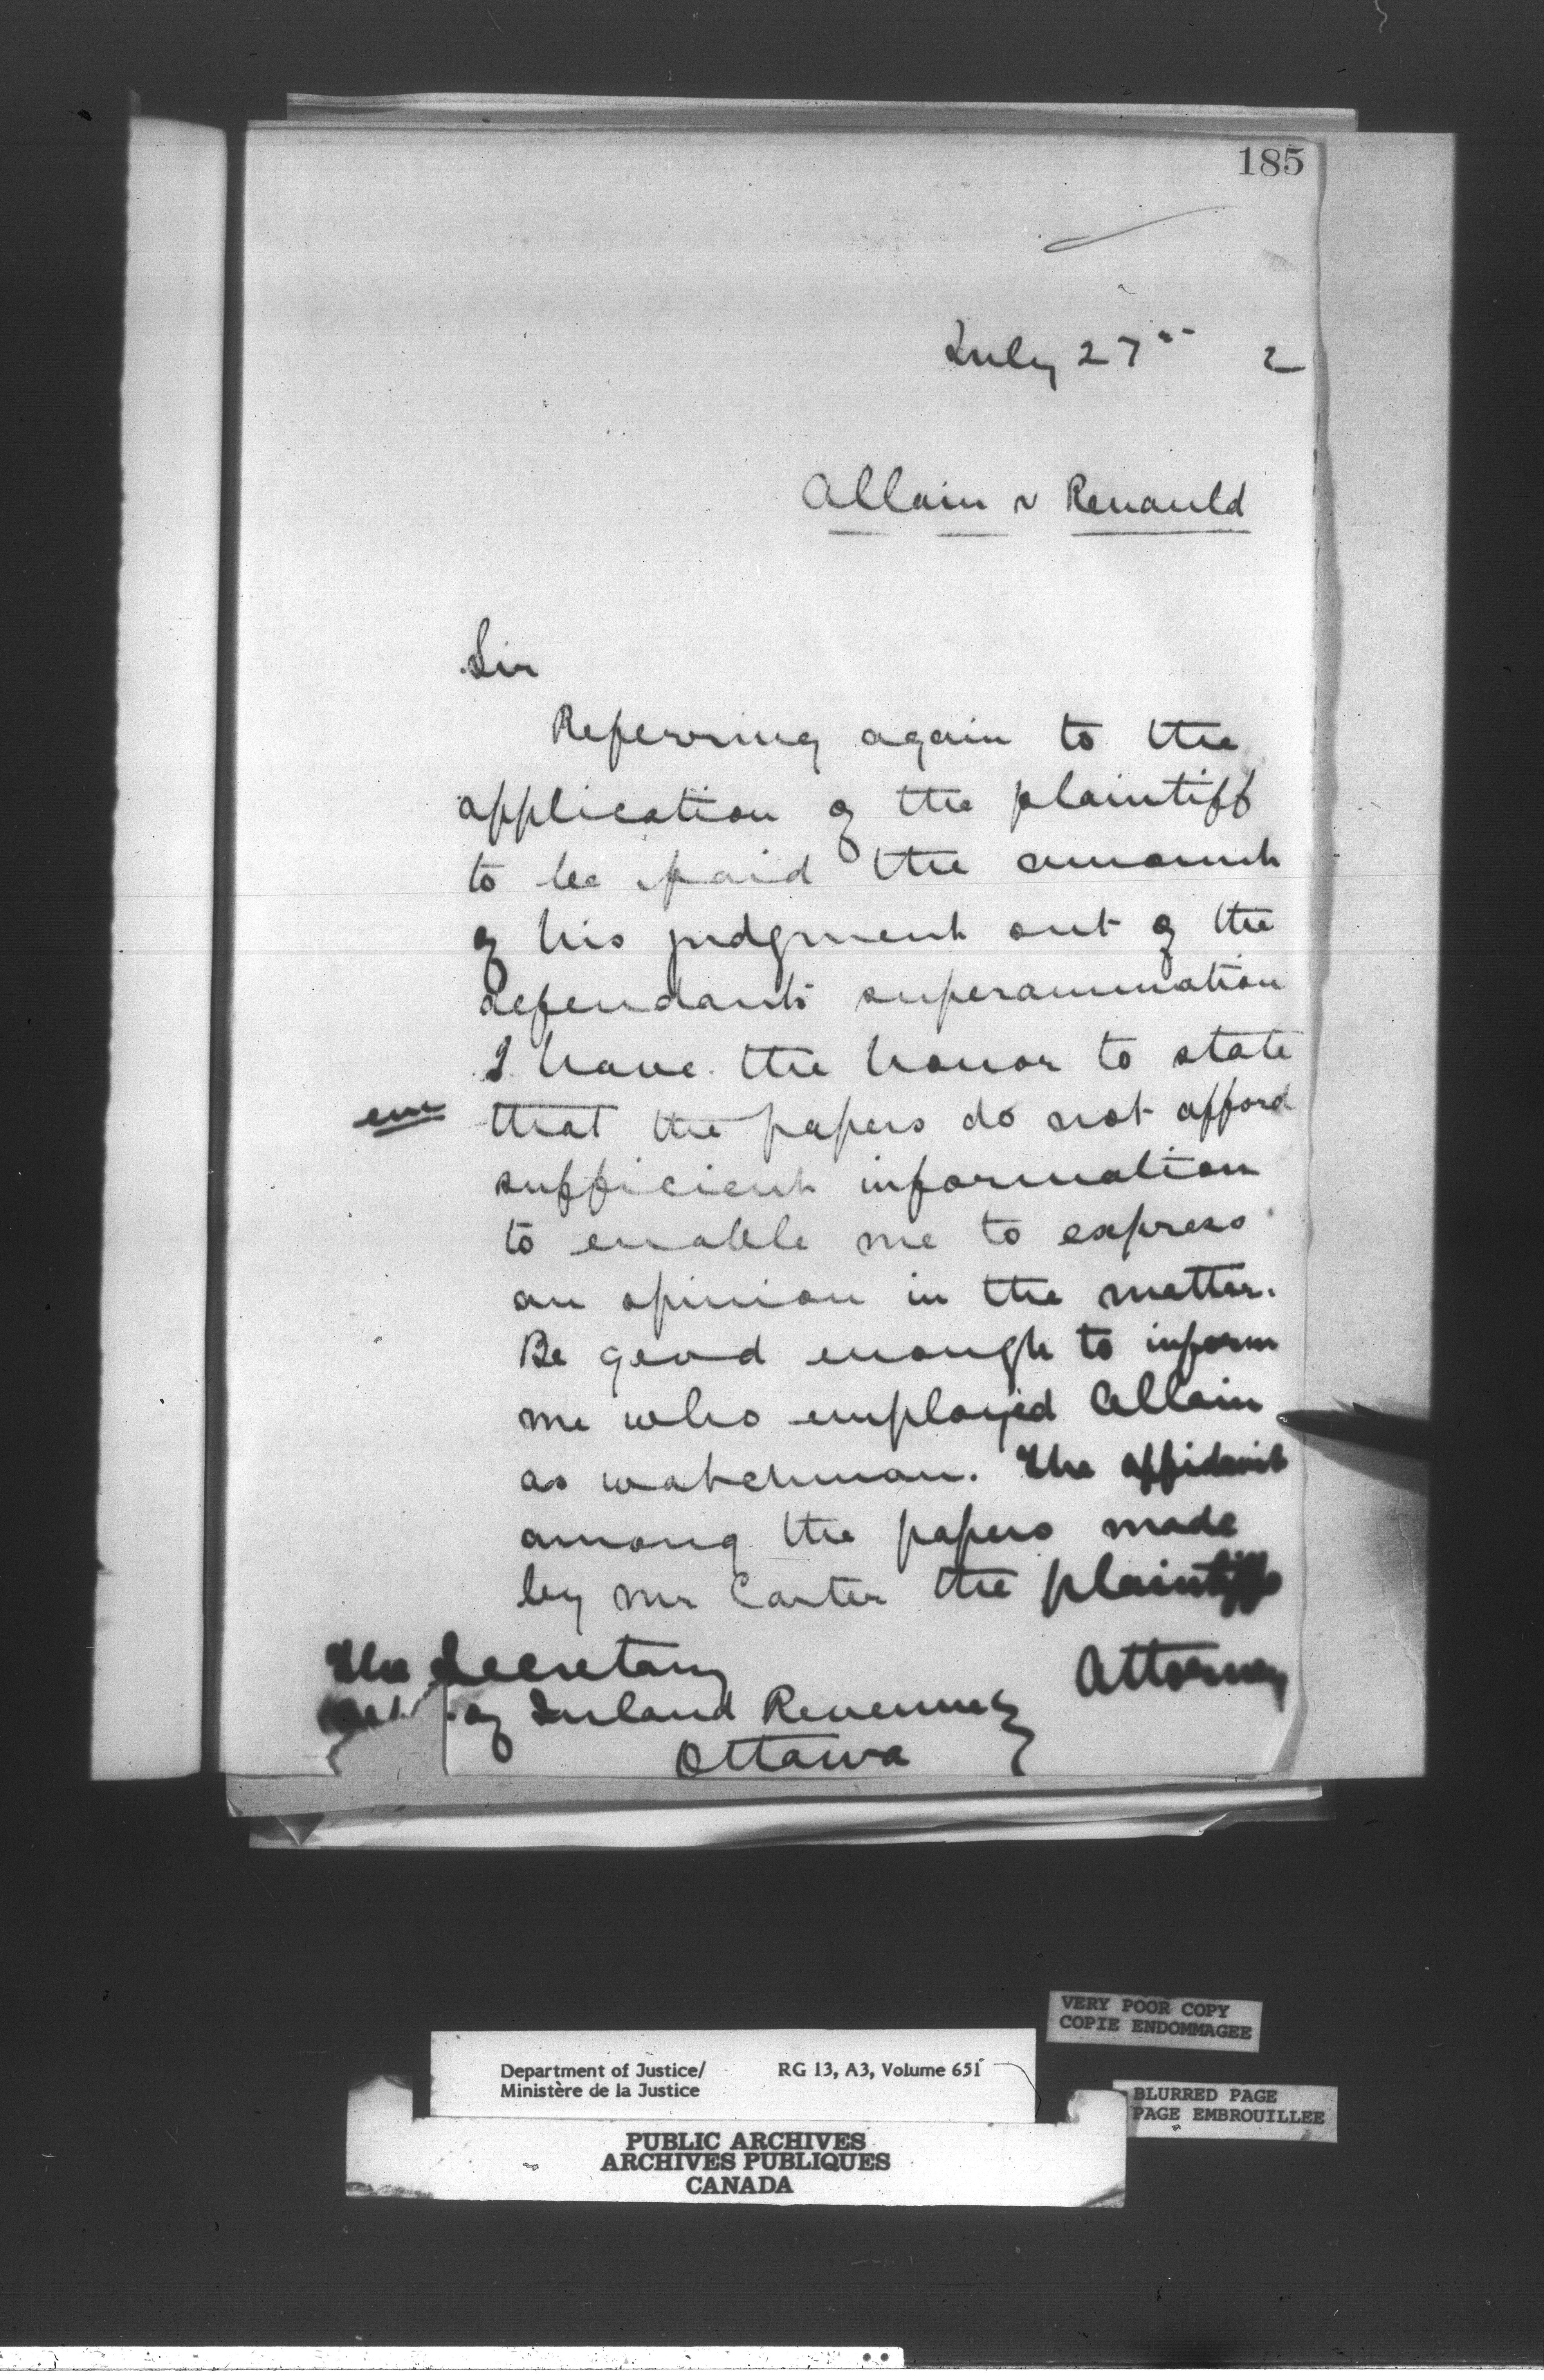 185
July 27th 2
Allain v Renauld
Sir
Referring again to the
application of the plaintiff
to be paid the amount
of his judgment out of the
defendants superannuation
I have the honor to state
that the papers do not afford
sufficient information
to enable me to express
an opinion in the matter.
Be good enough to inform
me who employed Allain
as watchman. The affidavit
among the papers made
by Mr Carter the plaintiffs
Attorney
The Secretary
of Inland Revenue
Ottawa
VERY POOR COPY
COPIE ENDOMMAGEE
Department of Justice/ RG 13, A3, Volume 651
Ministère de la Justice
BLURRED PAGE
PAGE EMBROUILLEE
PUBLIC ARCHIVES
ARCHIVES PUBLIQUES
CANADA